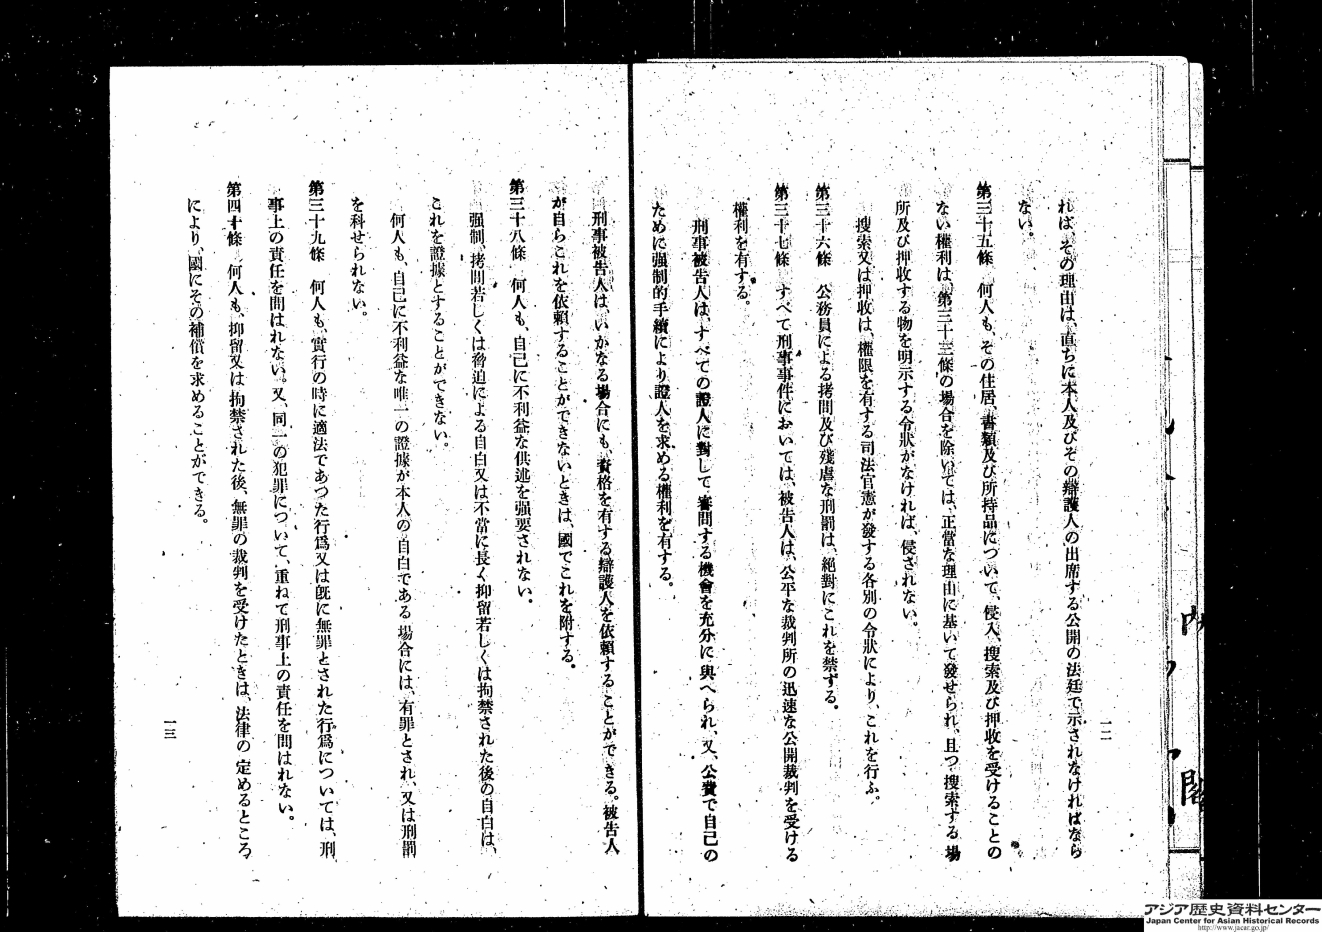 れば、その理由は、直ちに本人及びその辯護人の出席する公開の法廷で示されなければなら
ない。
第三十五條　何人も、その住居、書類及び所持品について、侵入、搜索及び押收を受けることの
ない權利は、第三十三條の場合を除いては、正當な理由に基いて發せられ、且つ搜索する場
所及び押收する物を明示する令狀がなければ、侵されない。
搜索又は押收は、權限を有する司法官憲が發する各別の令狀により、これを行ふ。
第三十六條　公務員による拷問及び殘虐な刑罰は、絕對にこれを禁ずる。
第三十七條　すべて刑事事件においては、被告人は、公平な裁判所の迅速な公開裁判を受ける
權利を有する。
刑事被告人は、すべての證人に對して審問する機會を充分に與へられ、又、公費で自己の
ために强制的手續により證人を求める權利を有する。
一二
刑事被告人は、いかなる場合にも、資格を有する辯護人を依賴することができる。被告人
が自らこれを依賴することができないときは、國でこれを附する。
第三十八條　何人も、自己に不利益な供述を强要されない。
强制、拷問若しくは脅迫による自白又は不當に長く抑留若しくは拘禁された後の自白は、
これを證據とすることができない。
何人も、自己に不利益な唯一の證據が本人の自白である場合には、有罪とされ、又は刑罰
を科せられない。
第三十九條　何人も、實行の時に適法であつた行爲又は旣に無罪とされた行爲については、刑
事上の責任を問はれない。又、同一の犯罪について、重ねて刑事上の責任を問はれない。
第四十條　何人も、抑留又は拘禁された後、無罪の裁判を受けたときは、法律の定めるところ
により、國にその補償を求めることができる。
一三
内
閣
アジア歴史資料センター
Japan Center for Asian Historical Records
http://www.jacar.go.jp/